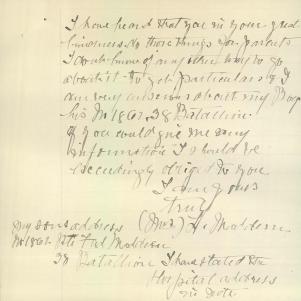 I have heard that you in your great
kindness do those things for parents
I don't know of any other way to go
about it to get particulars & I
am very anxious about my Boy
his No 1861. 38 Battalion
if you could give me any
information I should be
exceedingly obliged to you
I am yours
truly
(Mrs) H. Maddern
my sons address
No 1861 Pte Maddern
38 Battalion I have stated the
Hospital address
in note